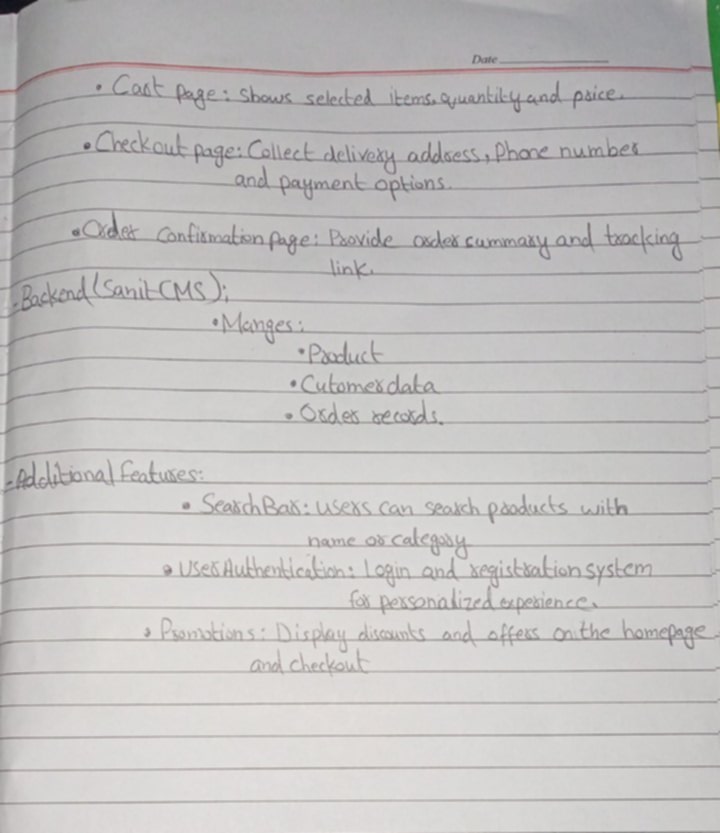 Date
• Cart Page: Shows selected items, quantity and price.
• Checkout page: Collect delivery address, Phone number
and payment options.
• Order Confirmation page: Provide order summary and tracking
link.
- Backend (Sanit CMS):
• Manges:
• Product
• Cutomer data
• Order records.
- Additional features:
• Search Bar: users can search products with
name or category
• User Authentication: Login and registration system
for personalized experience.
• Promotions: Display discounts and offers on the homepage
and checkout